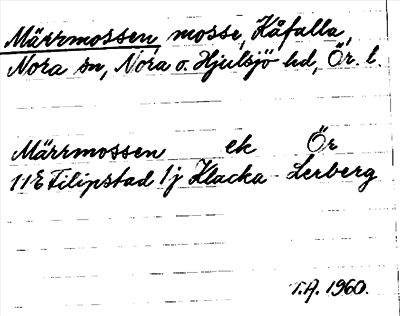 Märrmossen mosse, Kåfalla,
Nora sn, Nora o. Hjulsjö hd, Ör. l.
Märrmossen ek Ör
11E Filipstad 1j Klacka-Lerberg
T.A. 1960.